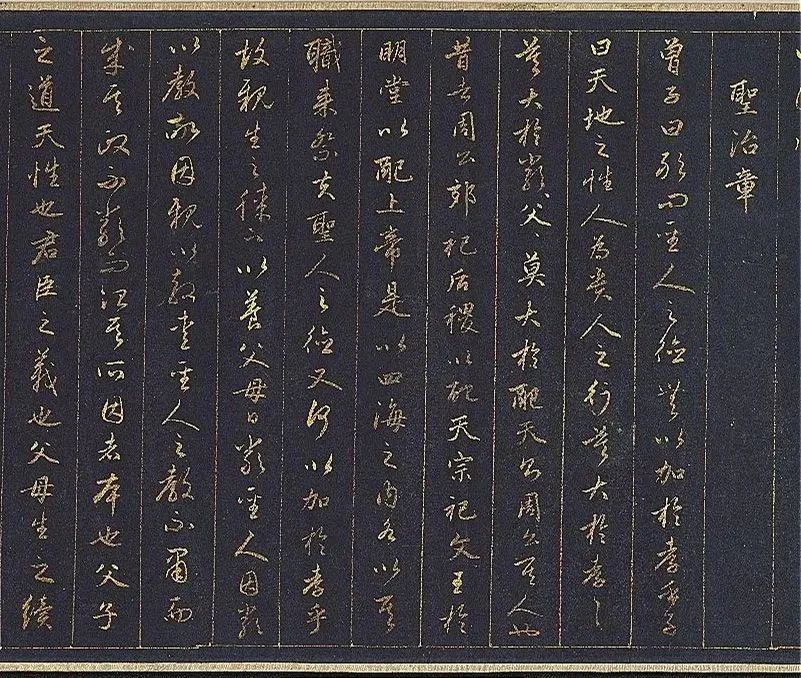 聖治章
曾子曰敢問聖人之德無以加於孝乎子
曰天地之性人為貴人之行莫大於孝〻
莫大於嚴父〻莫大於配天則周公其人也
昔者周公郊祀后稷以配天宗祀文王於
明堂以配上帝是以四海之內各以其
職來祭夫聖人之德又何以加於孝乎
故親生之膝下以養父母日嚴聖人因嚴
以教敬因親以教愛聖人之教不肅而
成其政不嚴而治其所因者本也父子
之道天性也君臣之義也父母生之續